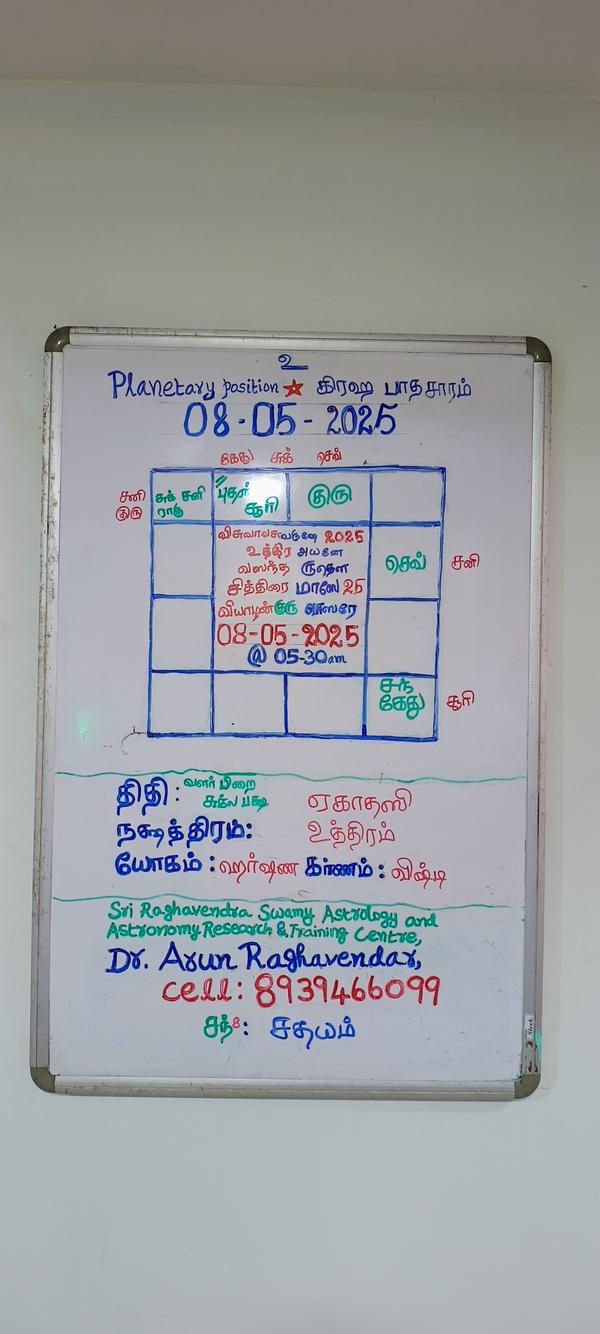 உ
Planetary position ☆ கிரஹ பாதசாரம்
08-05-2025
கேது சுக் செவ்
சனி
குரு
சுக் சனி
ராகு
புதன்
சூரி
குரு
விசுவாவசு வருஷே 2025
உத்திர அயனே
வஸந்த ருதௌ
சித்திரை மாஸே 25
வியாழன் குரு வாஸரே
08-05-2025
@ 05-30am
செவ் சனி
சந்
கேது சூரி
திதி: வளர் பிறை
சுக்ல பக்ஷ ஏகாதஸி
நக்ஷத்திரம்: உத்திரம்
யோகம்: ஹர்ஷண கர்ணம்: விஷ்டி
Sri Raghavendra Swamy Astrology and
Astronomy Research & Training Centre,
Dr. Arun Raghavendar,
cell: 8939466099
சதயம்